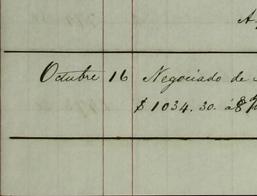 Octubre 16 Negociado de
$ 1034. 30. á 8